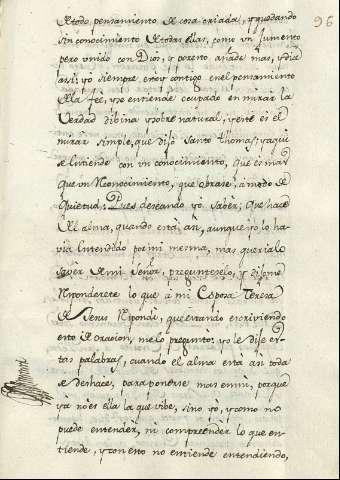 96
de todo pensamiento de cosa criada, y quedando
sin conocimiento de todas ellas, como un Jumento
pero unido con Dios, y por esto añade mas, y dice
asi; yo siempre estoy contigo en el pensamiento
de la fee, y se entiende ocupado en mirar la
Verdad dibina y sobre natural, y este es el
mirar simple, que dijo santo thomas; y aqui
se entiende con un conocimiento, que es mas
que un Reconocimiento, que obrase, a modo de
Quietud. Pues deseando yo, saber; Que hace
el alma, quando está, asi, aunque yo lo ha
via Entendido por mi mesma, mas querialo
saver de mi Señor, preguntéselo, y dijome
Responderete lo que a mi Esposa Teresa
de Jesus Respondi, que estando escriviendo
esto de Oracion, me lo preguntó: yo le dije es-
tas palabras, cuando el alma esta asi toda
se deshace, para ponerse mas en mi, porque
ya no es ella la que vibe, sino yo, y como no
puede entender, ni comprender lo que en-
tiende, y con esto no entiende entendiendo,